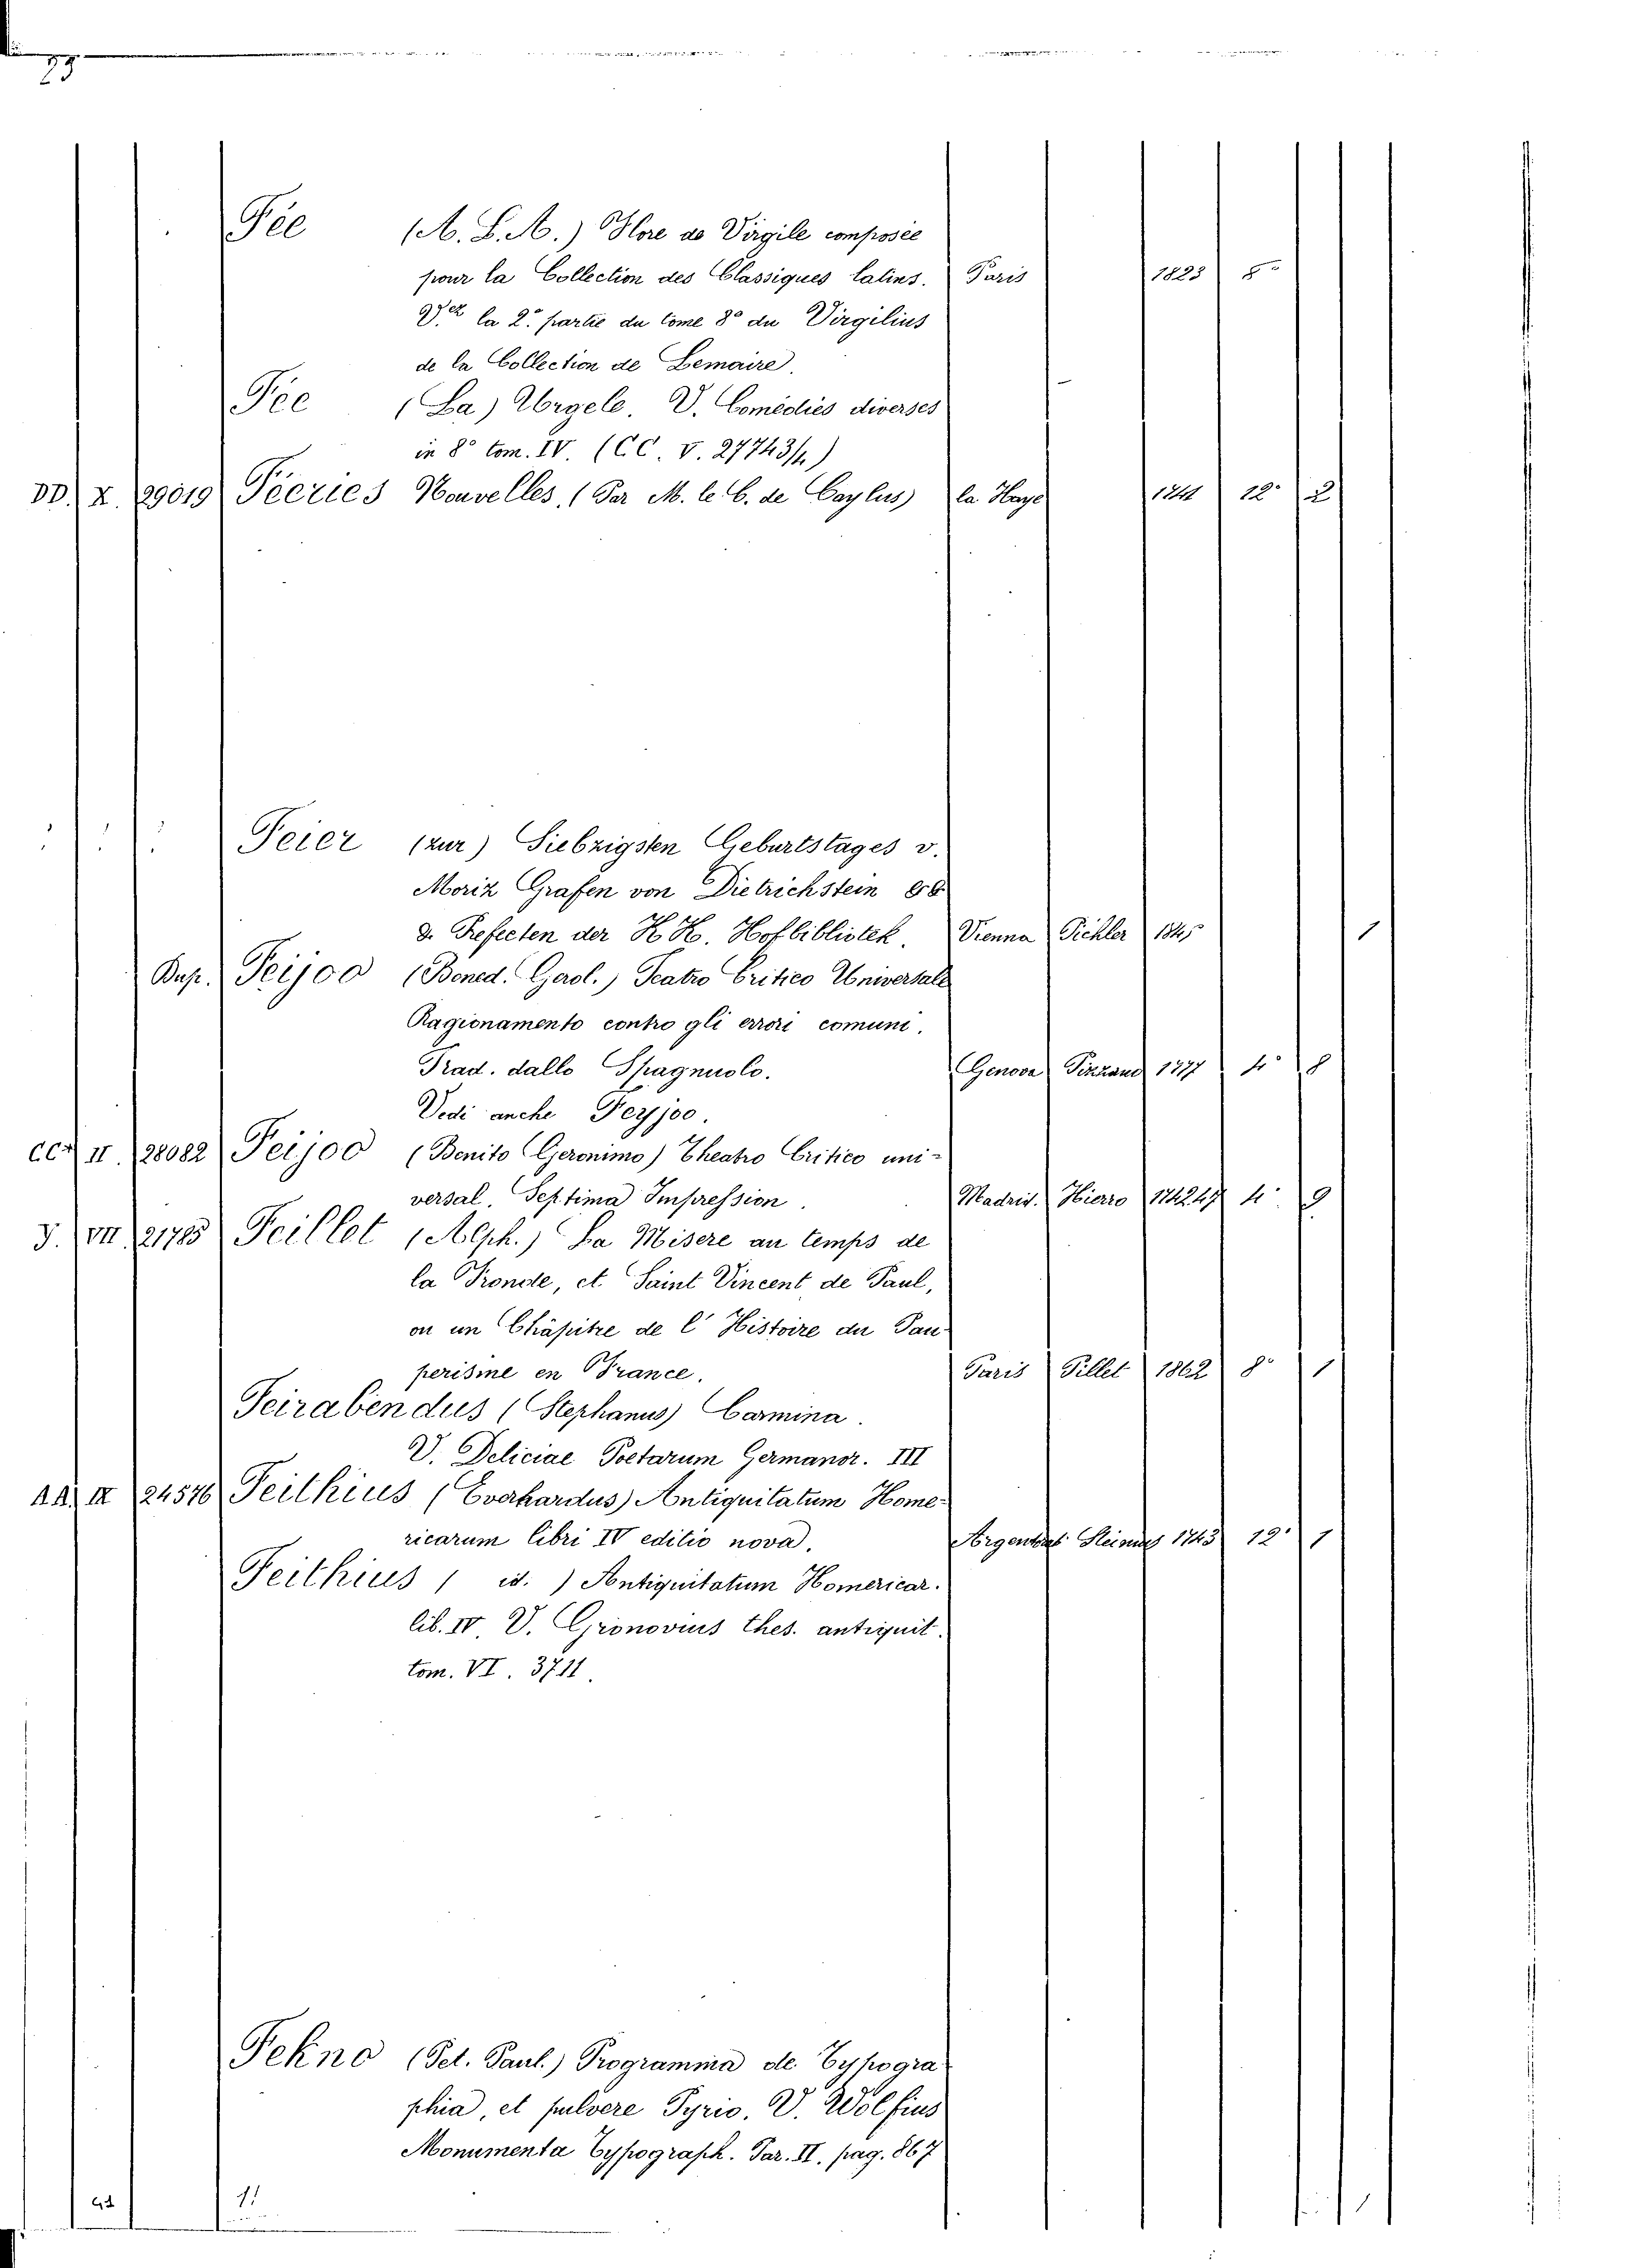 Fée (A. L. A.) Flore de Virgile composée
pour la Collection des Classiques latins. Paris 1823 8°
V.ez la 2.e partie du tome 8° du Virgilius
de la Collection de Lemaire.
Fée (La) Urgele. V. Comédies diverses
in 8° tom. IV. (CC. V. 27743/4)
DD. X. 29019 Féeries Nouvelles. (Par M. le C. de Caylus) la Haye 1741 12° 2
Feier (zur) Siebzigsten Geburtstages v.
Moriz Grafen von Dietrichstein
d. Prefecten der K. K. Hofbibliotek. Vienna Pichler 1845 1
Dup. Feijoo (Bened. Gerol.) Teatro Critico Universale
Ragionamento contro gli errori comuni.
Trad. dallo Spagnuolo. Genova Pizzano 1777 4° 8
Vedi anche Feyjoo.
CC. II. 28082 Feijoo (Benito Geronimo) Theatro Critico uni-
versal. Septima Impression. Madrid. Hierro 174247 4° 9
J. VII. 21785 Feillet (Alph.) La Misere au temps de
la Fronde, et Saint Vincent de Paul,
ou un Châpitre de l'Histoire du Pau-
perisme en France. Paris Pillet 1862 8° 1
Feirabendus (Stephanus) Carmina.
V. Deliciae Poetarum Germanor. III
AA. IX 24576 Feithius (Everhardus) Antiquitatum Home-
ricarum libri IV editio nova. Argentorat. Steinius 1743 12° 1
Feithius ( id. ) Antiquitatum Homericar.
lib. IV. V. Gronovius thes. antiquit.
tom. VI. 3711.
Fekno (Pet. Paul.) Programma de Typogra-
phia, et pulvere Pyrio. V. Wolfius
Monumenta Typograph. Par. II. pag. 867
11